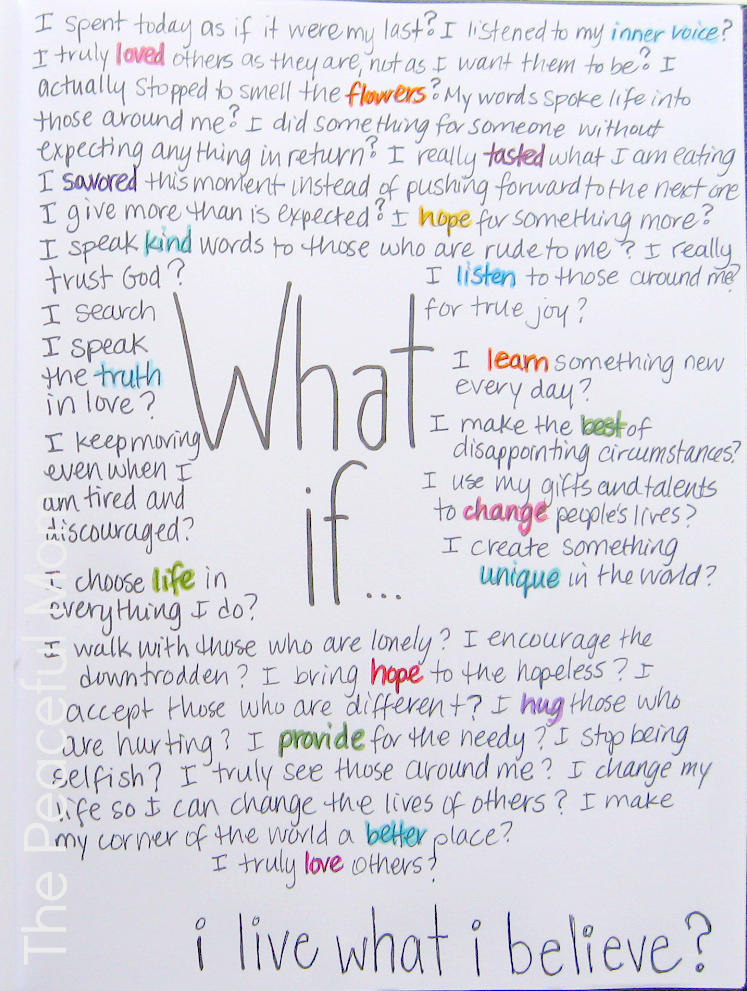 I spent today as if it were my last? I listened to my inner voice?
I truly loved others as they are, not as I want them to be? I
actually stopped to smell the flowers? My words spoke life into
those around me? I did something for someone without
expecting anything in return? I really tasted what I am eating
I savored this moment instead of pushing forward to the next one
I give more than is expected? I hope for something more?
I speak kind words to those who are rude to me? I really
trust God?
I listen to those around me?
I search
for true joy?
I speak
the truth
in love?
I keep moving
even when I
am tired and
discouraged?
I choose life in
everything I do?
What
if...
I learn something new
every day?
I make the best of
disappointing circumstances?
I use my gifts and talents
to change people's lives?
I create something
unique in the world?
I walk with those who are lonely? I encourage the
downtrodden? I bring hope to the hopeless? I
accept those who are different? I hug those who
are hurting? I provide for the needy? I stop being
selfish? I truly see those around me? I change my
life so I can change the lives of others? I make
my corner of the world a better place?
I truly love others?
i live what i believe?
The Peaceful Mom